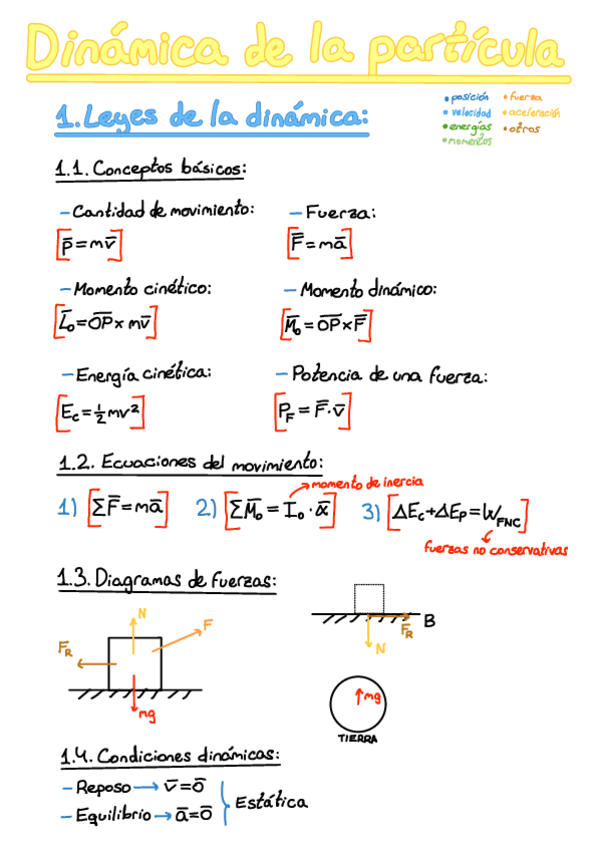 Dinámica de la partícula
1. Leyes de la dinámica:
• posición • fuerza
• velocidad • aceleración
• energías • otros
• momentos
1.1. Conceptos básicos:
– Cantidad de movimiento: – Fuerza:
[p̄ = mv̄] [F̄ = mā]
– Momento cinético: – Momento dinámico:
[L̄₀ = OP̅ × mv̄] [M̄₀ = OP̅ × F̄]
– Energía cinética: – Potencia de una fuerza:
[Ec = ½mv²] [P_F = F̄·v̄]
1.2. Ecuaciones del movimiento:
momento de inercia
1) [ΣF̄ = mā] 2) [ΣM̄₀ = I₀·ᾱ] 3) [ΔEc + ΔEp = W_FNC]
fuerzas no conservativas
1.3. Diagramas de fuerzas:
N
F
F_R
mg
B
F_R
N
mg
TIERRA
1.4. Condiciones dinámicas:
– Reposo → v̄ = 0̄
– Equilibrio → ā = 0̄
Estática